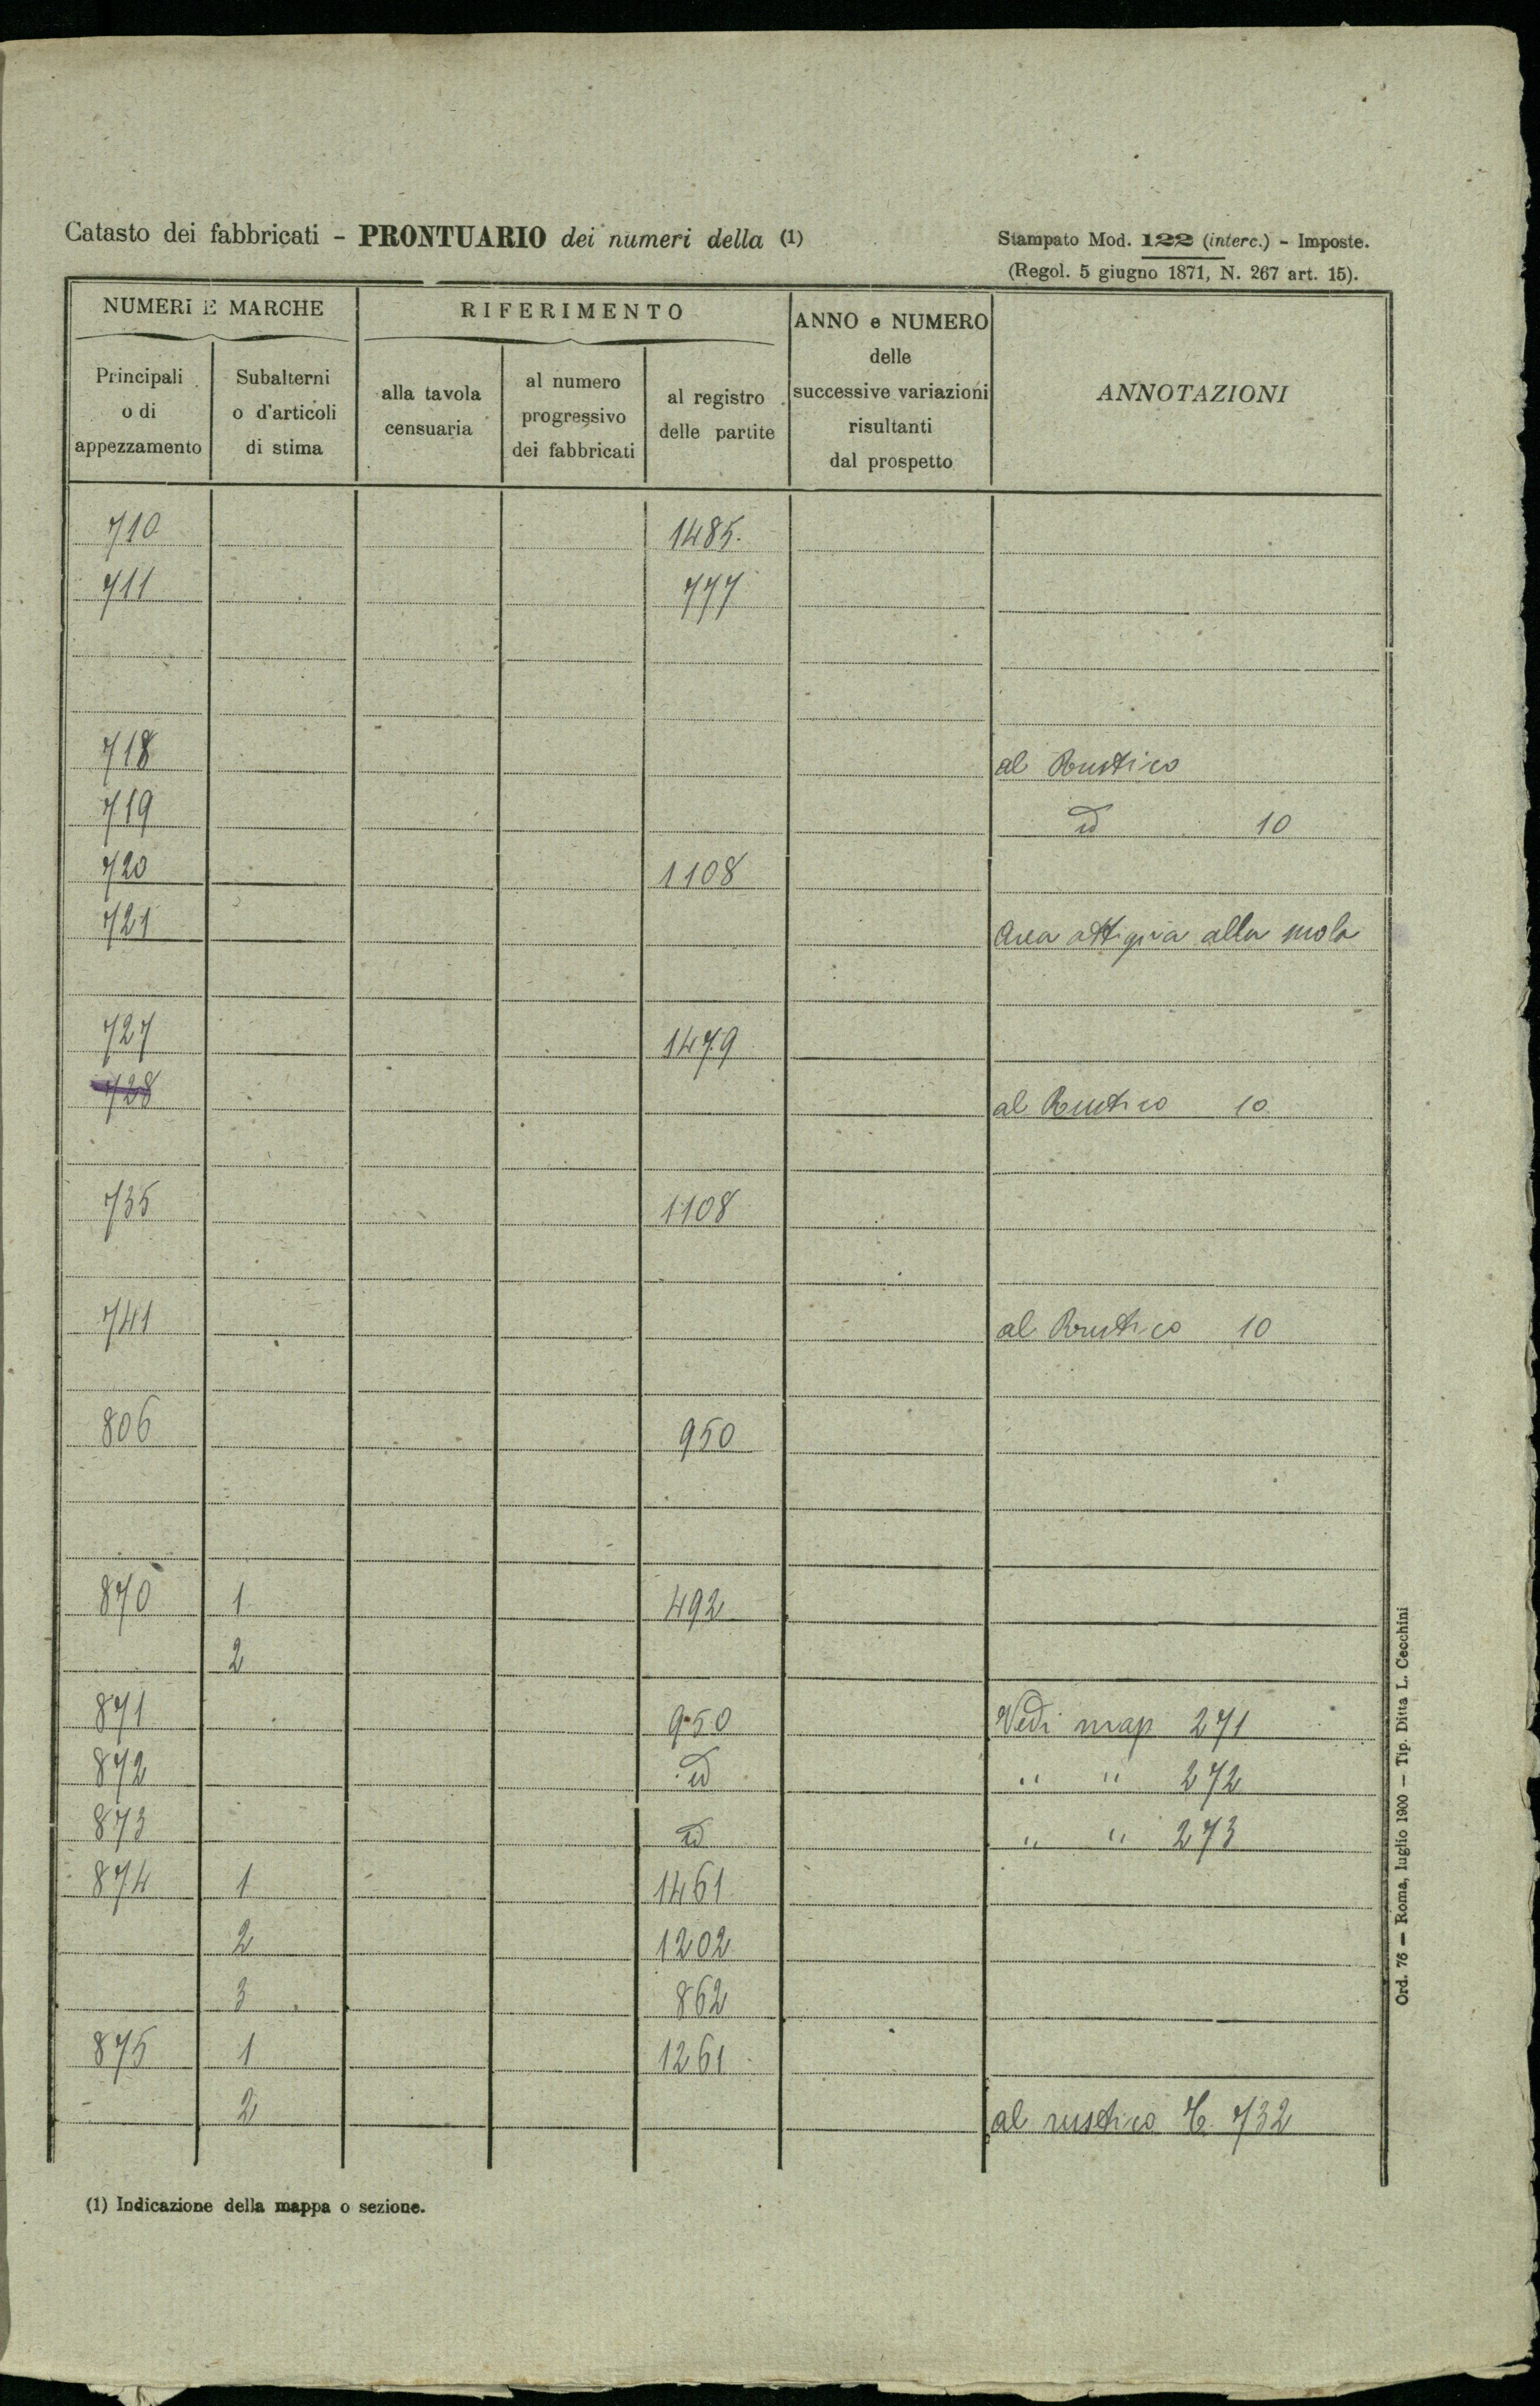 Catasto dei fabbricati - PRONTUARIO dei numeri della (1)
Stampato Mod. 122 (interc.) - Imposte.
(Regol. 5 giugno 1871, N. 267 art. 15).
NUMERI E MARCHE
RIFERIMENTO
ANNO e NUMERO
delle
successive variazioni
risultanti
dal prospetto
ANNOTAZIONI
Principali
o di
appezzamento
Subalterni
o d'articoli
di stima
alla tavola
censuaria
al numero
progressivo
dei fabbricati
al registro
delle partite
710 1485.
711 777
718 al Rustico
719 id 10
720 1108
721 Area attigua alla mola
727 1479
728 al Rustico 10
735 1108
741 al Rustico 10
806 950
870 1 492
2
871 950 Vedi map 271
872 id " " 272
873 id " " 273
874 1 1461
2 1202
3 862
875 1 1261
2 al rustico 732
(1) Indicazione della mappa o sezione.
Ord. 76 — Roma, luglio 1900 — Tip. Ditta L. Cecchini